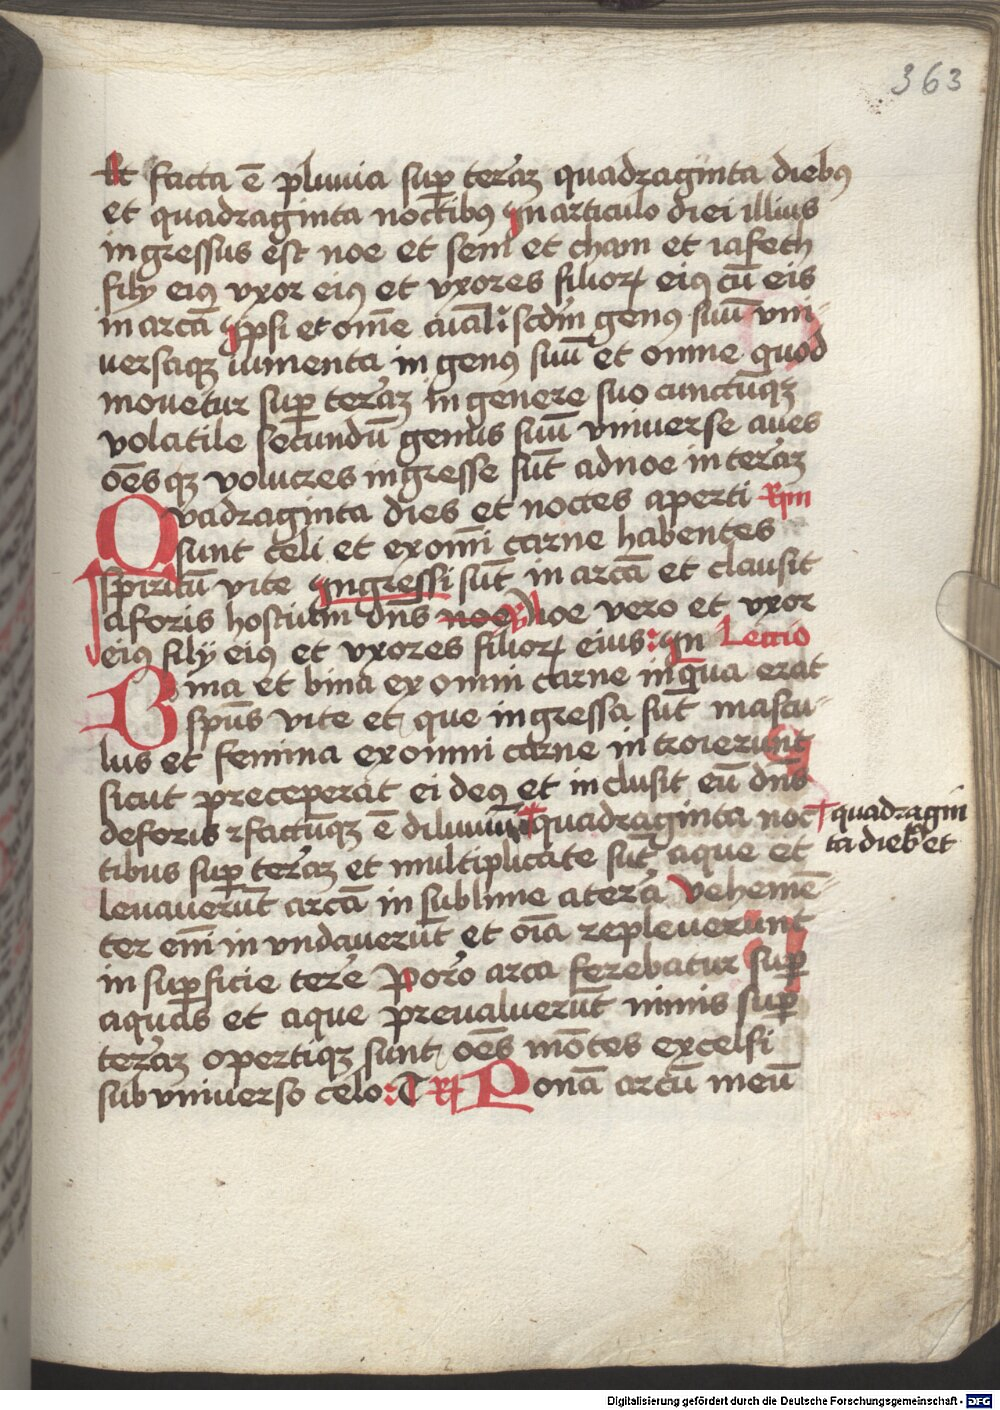 363
Et facta ē pluuia sup̄ terr̄aꝫ quadraginta diebꝰ
et quadraginta noctibꝰ In articulo diei illius
ingressus est noe et sem et cham et iafeth
filij eiꝰ vxor eiꝰ et vxores filioꝝ eiꝰ cū eis
in arcā Ipsi et om̄e aīal scd̄m genꝰ suū vni-
uersaqꝫ iumenta in genꝰ suū et omne quod
mouetur sup̄ terr̄aꝫ in genere suo cunctūqꝫ
volatile secundū genus suū vniuerse aues
om̄esqꝫ volucres ingresse sūt ad noe in terr̄aꝫ
Quadraginta dies et noctes aperti Rm̄
sunt celi et ex om̄i carne habentes
spiritū vite Ingressi sūt in arcā et clausit
aforis hostium dn̄s noe V noe vero et vxor
eiꝰ filij eiꝰ et vxores filioꝝ eius: In Lectio
Bina et bina ex omni carne in qua erat
spūs vite et que ingressa sūt mascu-
lus et femina ex omni carne introierunt
sicut preceperat ei deꝰ et inclusit eū dn̄s
deforis et factūqꝫ ē diluuiū quadraginta noc
quadragin
ta dieb et
tibus sup̄ terr̄aꝫ et multiplicate sūt aque et
leuauerūt arcā in sublime a terr̄a Vehemē-
ter em̄ inundauerūt et oīa repleuerūnt
in sup̄ficie terr̄e Porr̄o arca ferebatur sup̄
aquas et aque preualuerūt nimis sup̄
terr̄aꝫ opertiqꝫ sunt om̄es mōtes excelsi
sub vniuerso celo: T R Ponā arcū meū
Digitalisierung gefördert durch die Deutsche Forschungsgemeinschaft - DFG